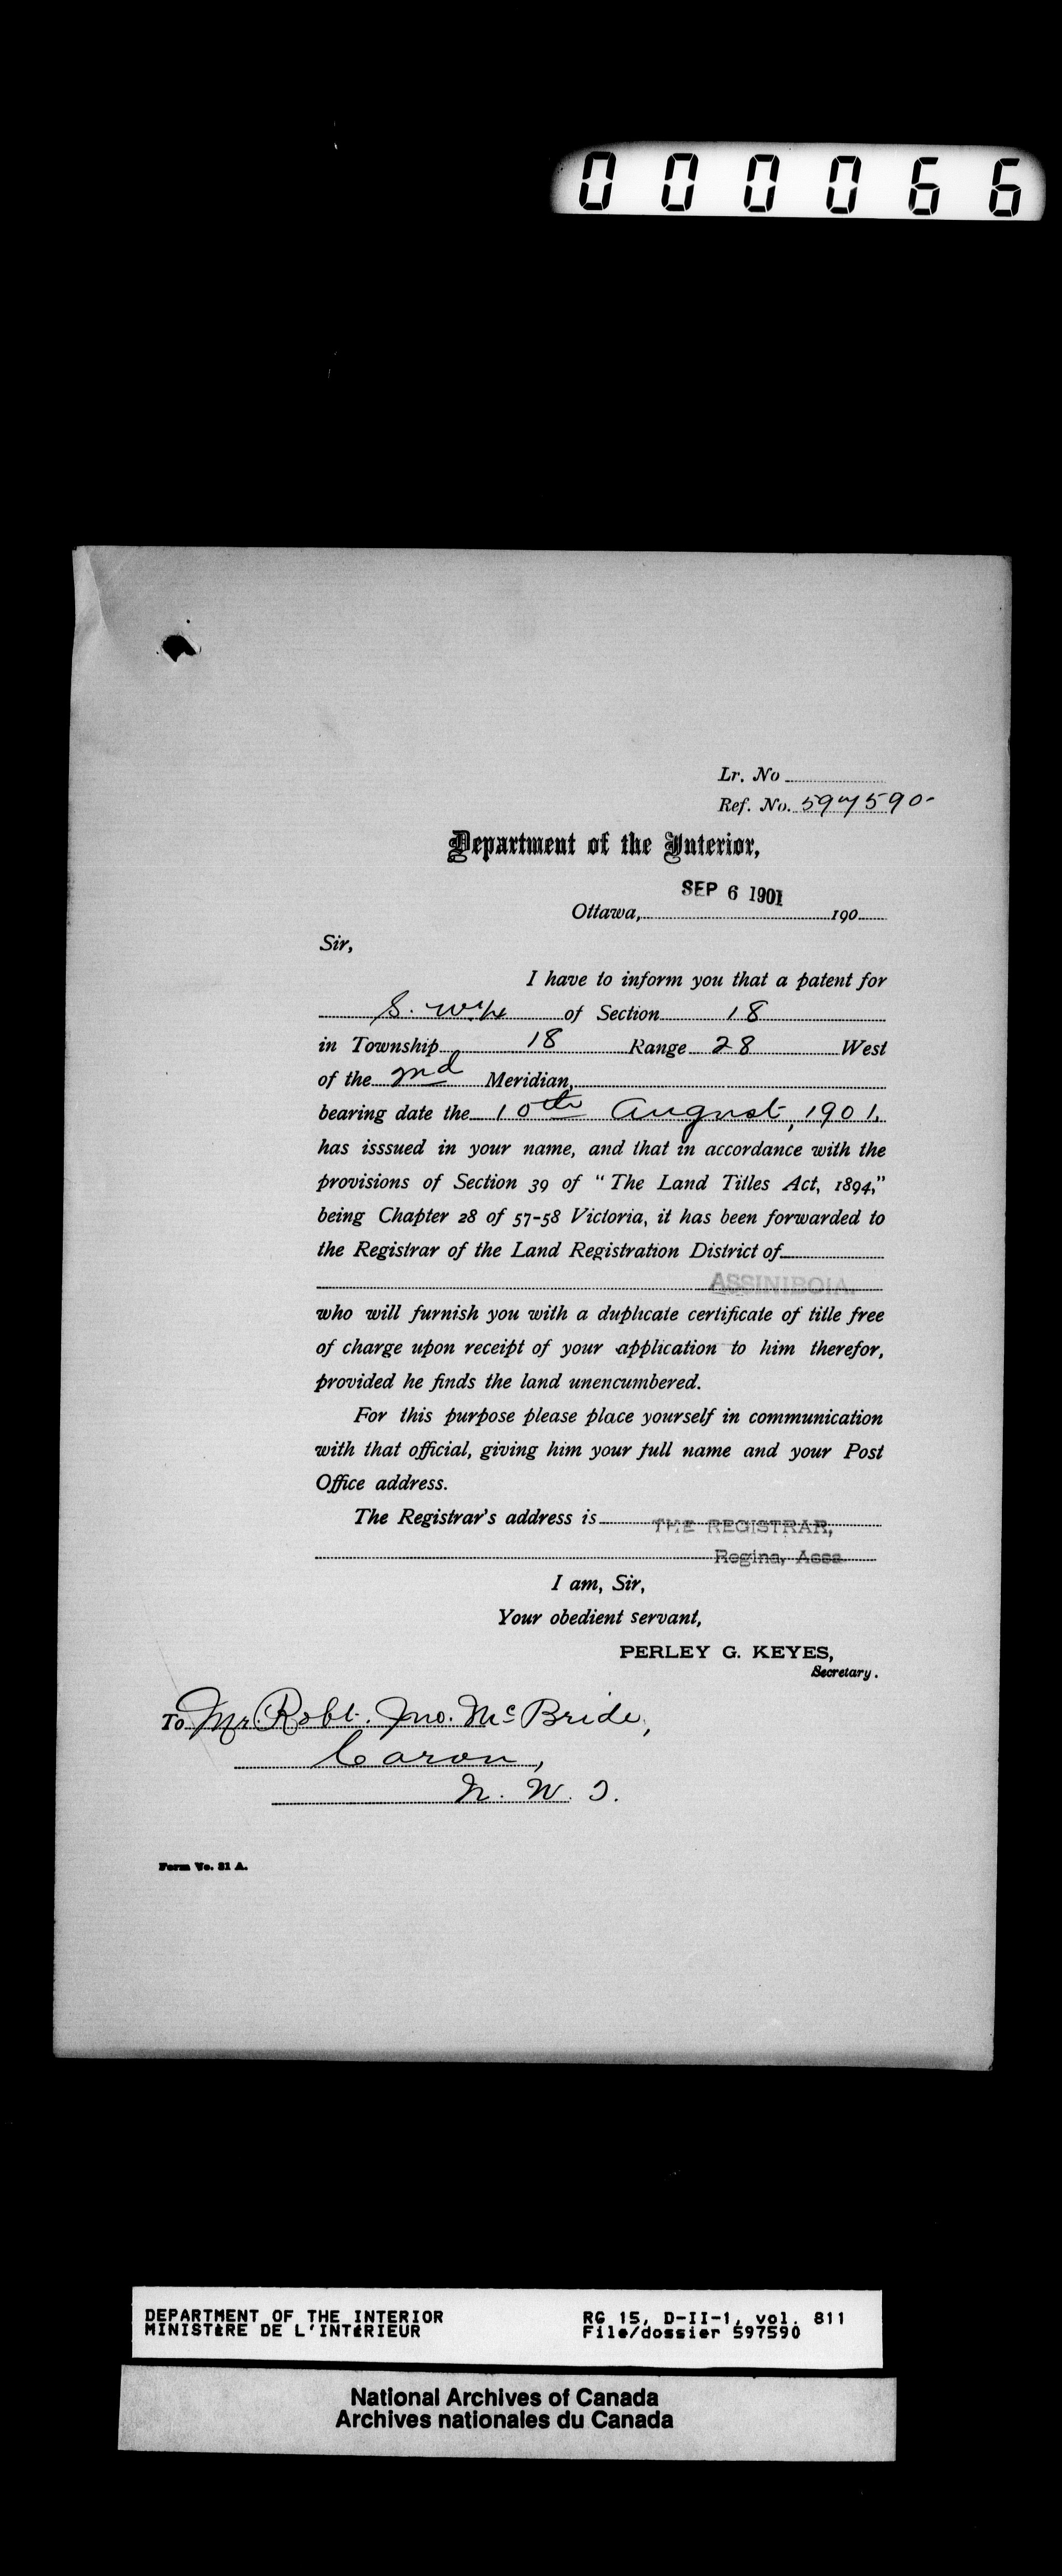 000066
Lr. No
Ref. No. 597590-
Department of the Interior,
SEP 6 1901
Ottawa, 190
Sir,
I have to inform you that a patent for
S. W 1/4 of Section 18
in Township 18 Range 28 West
of the 2nd Meridian,
bearing date the 10th August, 1901.
has isssued in your name, and that in accordance with the
provisions of Section 39 of "The Land Titles Act, 1894,"
being Chapter 28 of 57-58 Victoria, it has been forwarded to
the Registrar of the Land Registration District of
ASSINIBOIA.
who will furnish you with a duplicate certificate of title free
of charge upon receipt of your application to him therefor,
provided he finds the land unencumbered.
For this purpose please place yourself in communication
with that official, giving him your full name and your Post
Office address.
The Registrar's address is THE REGISTRAR,
Regina, Assa
I am, Sir,
Your obedient servant,
PERLEY G. KEYES,
Secretary.
To Mr. Robt. Jno. McBride,
Caron,
N. W. T.
Form No. 81 A.
DEPARTMENT OF THE INTERIOR RG 15, D-II-1, vol. 811
MINISTÈRE DE L'INTÉRIEUR File/dossier 597590
National Archives of Canada
Archives nationales du Canada